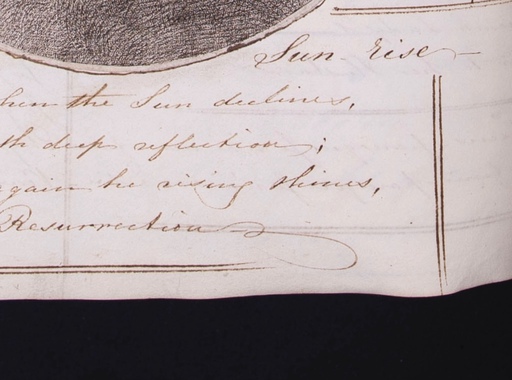 Sun rise
hen the Sun declines,
th deep reflection;
gain he rising shines,
Resurrection